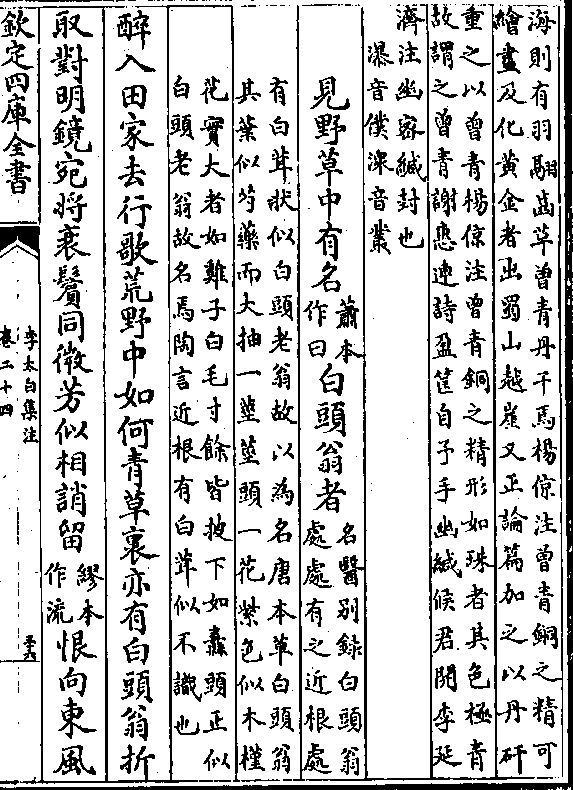 海則有羽翮齒革曽青丹干焉楊倞注曽青銅之精可
繪畫及化黄金者出蜀山越嶲又正論篇加之以丹矸
重之以曽青楊倞注曽青銅之精形如珠者其色極青
故謂之曽青謝惠連詩盈篋自予手幽緘候君開李延
濟注幽密緘封也
瀑音僕潨音叢
見野草中有名蕭本作曰白頭翁者名醫别録白頭翁處處有之近根處
有白茸狀似白頭老翁故以為名唐本草白頭翁
其葉似芍藥而大抽一莖莖頭一花紫色似木槿
花實大者如雞子白毛寸餘皆披下如纛頭正似
白頭老翁故名焉陶言近根有白茸似不識也
醉入田家去行歌荒野中如何青草裏亦有白頭翁折
取對明鏡宛將衰鬢同微芳似相誚留繆本作流恨向東風
欽定四庫全書
李太白集注
卷二十四